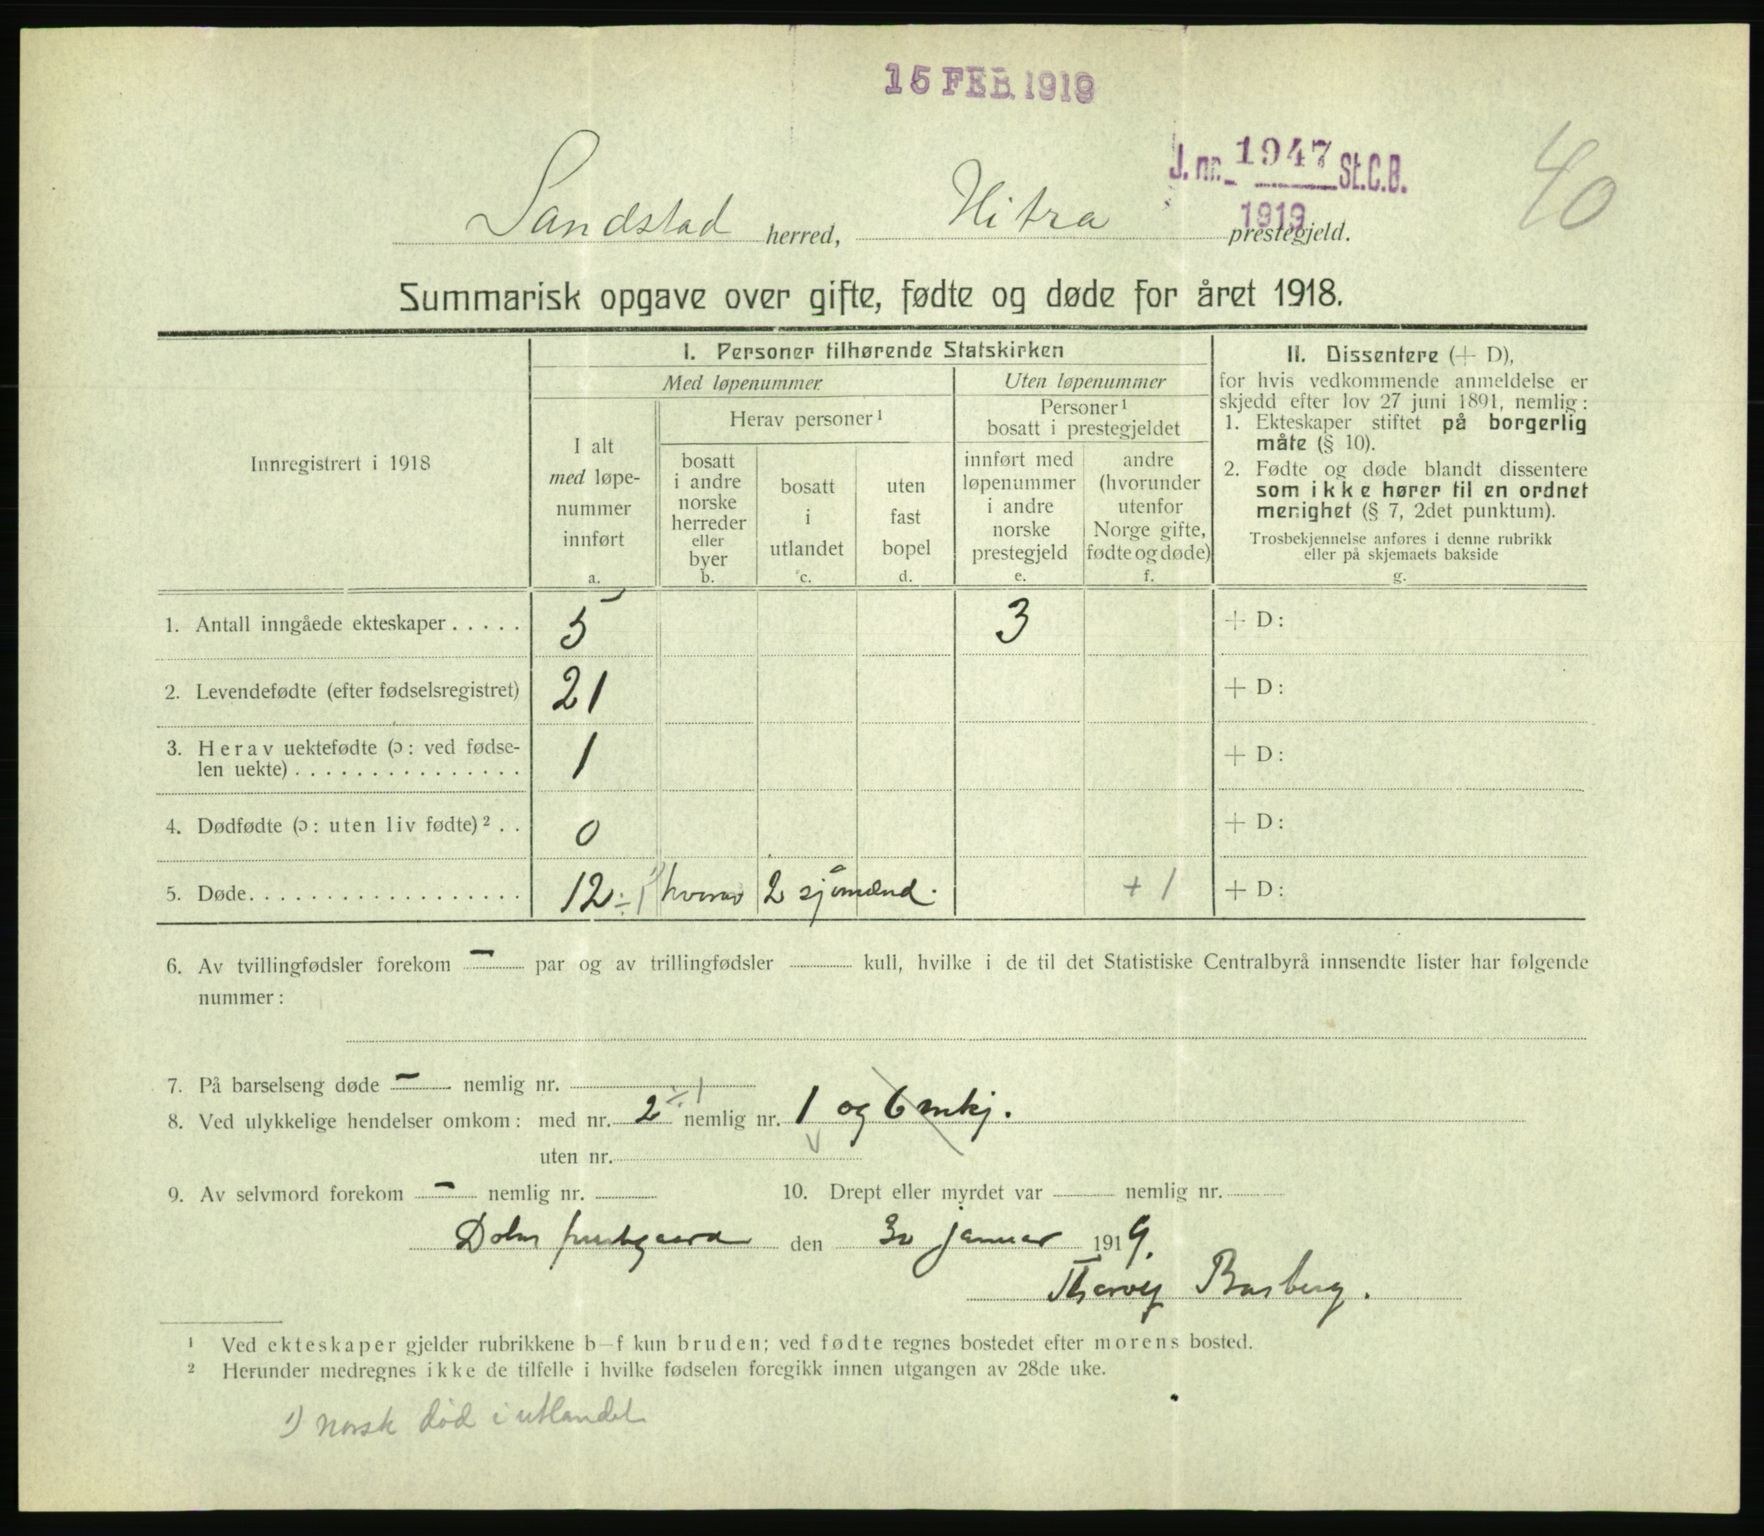 15 FEB. 1919
J. nr. 1947 St.C.B.
1919
40
Sandstad herred, Hitra prestegjeld.
Summarisk opgave over gifte, fødte og døde for året 1918.
Innregistrert i 1918
I. Personer tilhørende Statskirken
Med løpenummer
Uten løpenummer
I alt
med løpe-
nummer
innført
a.
Herav personer¹
bosatt
i andre
norske
herreder
eller
byer
b.
bosatt
i
utlandet
c.
uten
fast
bopel
d.
Personer¹
bosatt i prestegjeldet
innført med
løpenummer
i andre
norske
prestegjeld
e.
andre
(hvorunder
utenfor
Norge gifte,
fødte og døde)
f.
II. Dissentere (+ D),
for hvis vedkommende anmeldelse er
skjedd efter lov 27 juni 1891, nemlig:
1. Ekteskaper stiftet på borgerlig
måte (§ 10).
2. Fødte og døde blandt dissentere
som ikke hører til en ordnet
menighet (§ 7, 2det punktum).
Trosbekjennelse anføres i denne rubrikk
eller på skjemaets bakside
g.
1. Antall inngåede ekteskaper . . . . . 5 3 + D:
2. Levendefødte (efter fødselsregistret) 21 + D:
3. Herav uektefødte (ɔ: ved fødse-
len uekte) . . . . . . . . . . . . . . . 1 + D:
4. Dødfødte (ɔ: uten liv fødte)² . . 0 + D:
5. Døde. . . . . . . . . . . . . . . . . . 12 ÷ 1¹⁾ hvorav 2 sjømænd. + 1 + D:
6. Av tvillingfødsler forekom — par og av trillingfødsler kull, hvilke i de til det Statistiske Centralbyrå innsendte lister har følgende
nummer:
7. På barselseng døde — nemlig nr.
8. Ved ulykkelige hendelser omkom: med nr. 2 ÷ 1 nemlig nr. 1 og 6 mkj.
uten nr.
9. Av selvmord forekom — nemlig nr. 10. Drept eller myrdet var nemlig nr.
Dolm prestgaard den 30 januar 1919.
Basberg.
¹ Ved ekteskaper gjelder rubrikkene b–f kun bruden; ved fødte regnes bostedet efter morens bosted.
² Herunder medregnes ikke de tilfelle i hvilke fødselen foregikk innen utgangen av 28de uke.
1) norsk død i utlandet